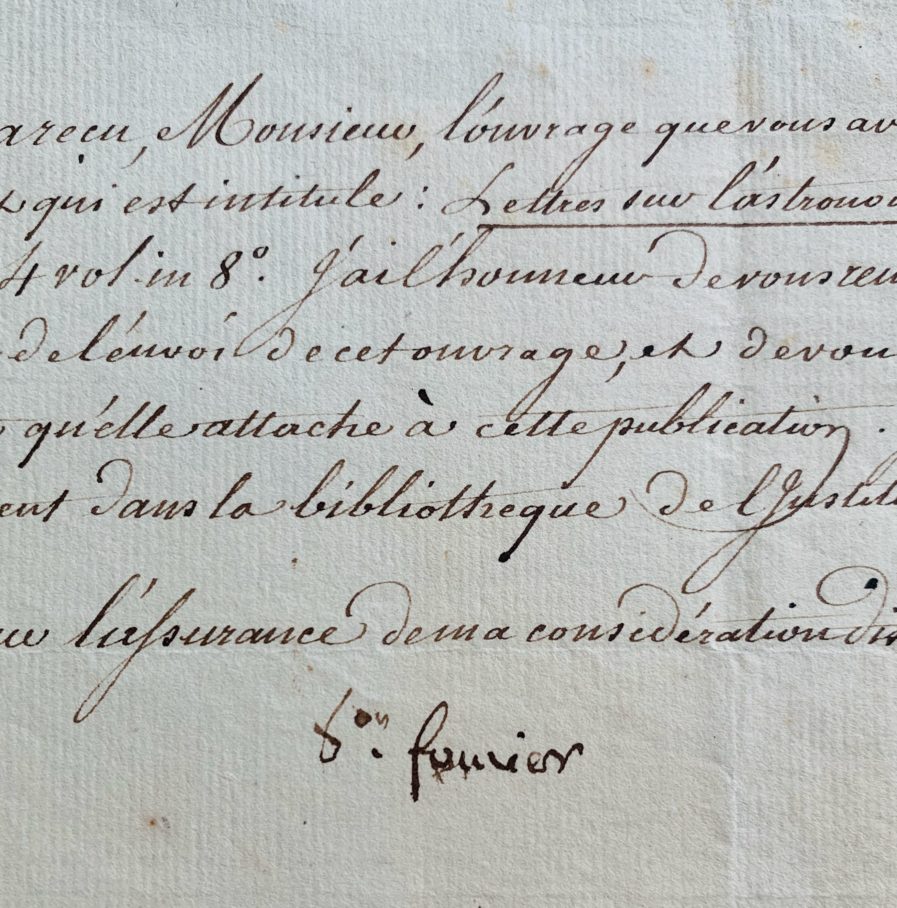 a reçu, Monsieur, l'ouvrage que vous av
qui est intitulé : Lettres sur l'astrono
4 vol. in 8°. J'ai l'honneur de vous rem
de l'envoi de cet ouvrage, et de vou
qu'elle attache à cette publication.
ent dans la bibliothèque de l'Institu
l'assurance de ma considération dis
Bon. fourier